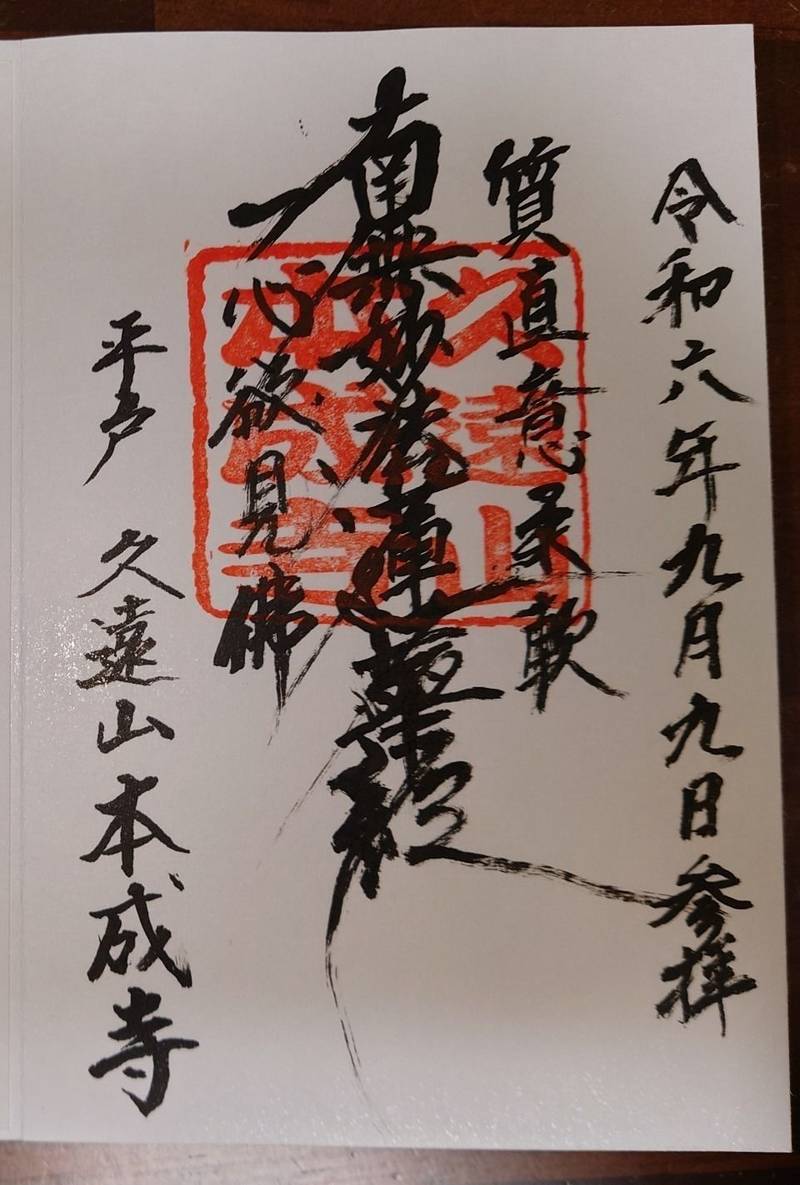 令和六年九月九日参拝
質直意柔軟
南無妙法蓮華経
一心欲見佛
平戸 久遠山本成寺
久遠山
本成寺